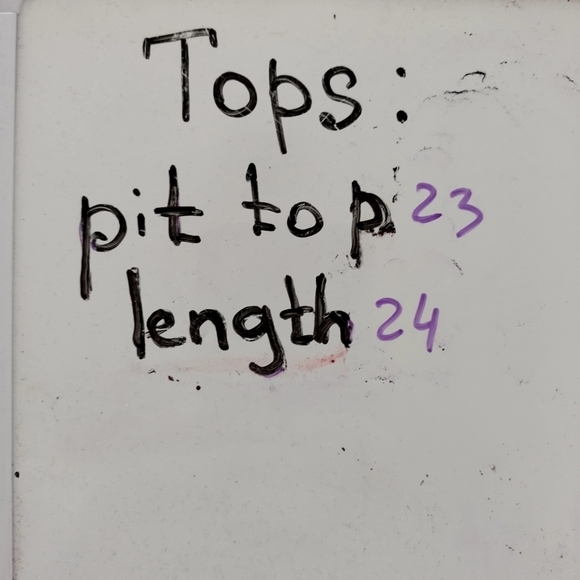 Tops:
pit to p 23
length 24